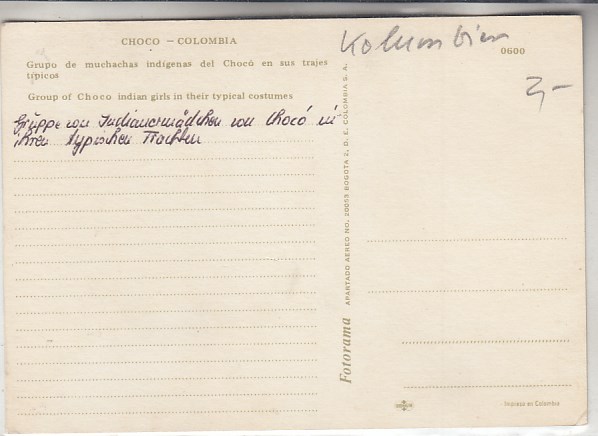 CHOCO — COLOMBIA
Grupo de muchachas indígenas del Chocó en sus trajes
típicos
Group of Choco indian girls in their typical costumes
Gruppe von Indianermädchen von Chocó in
ihren typischen Trachten
Kolumbien
0600
2,-
Fotorama APARTADO AEREO NO. 20053 BOGOTA 2, D. E. COLOMBIA S. A.
Impreso en Colombia